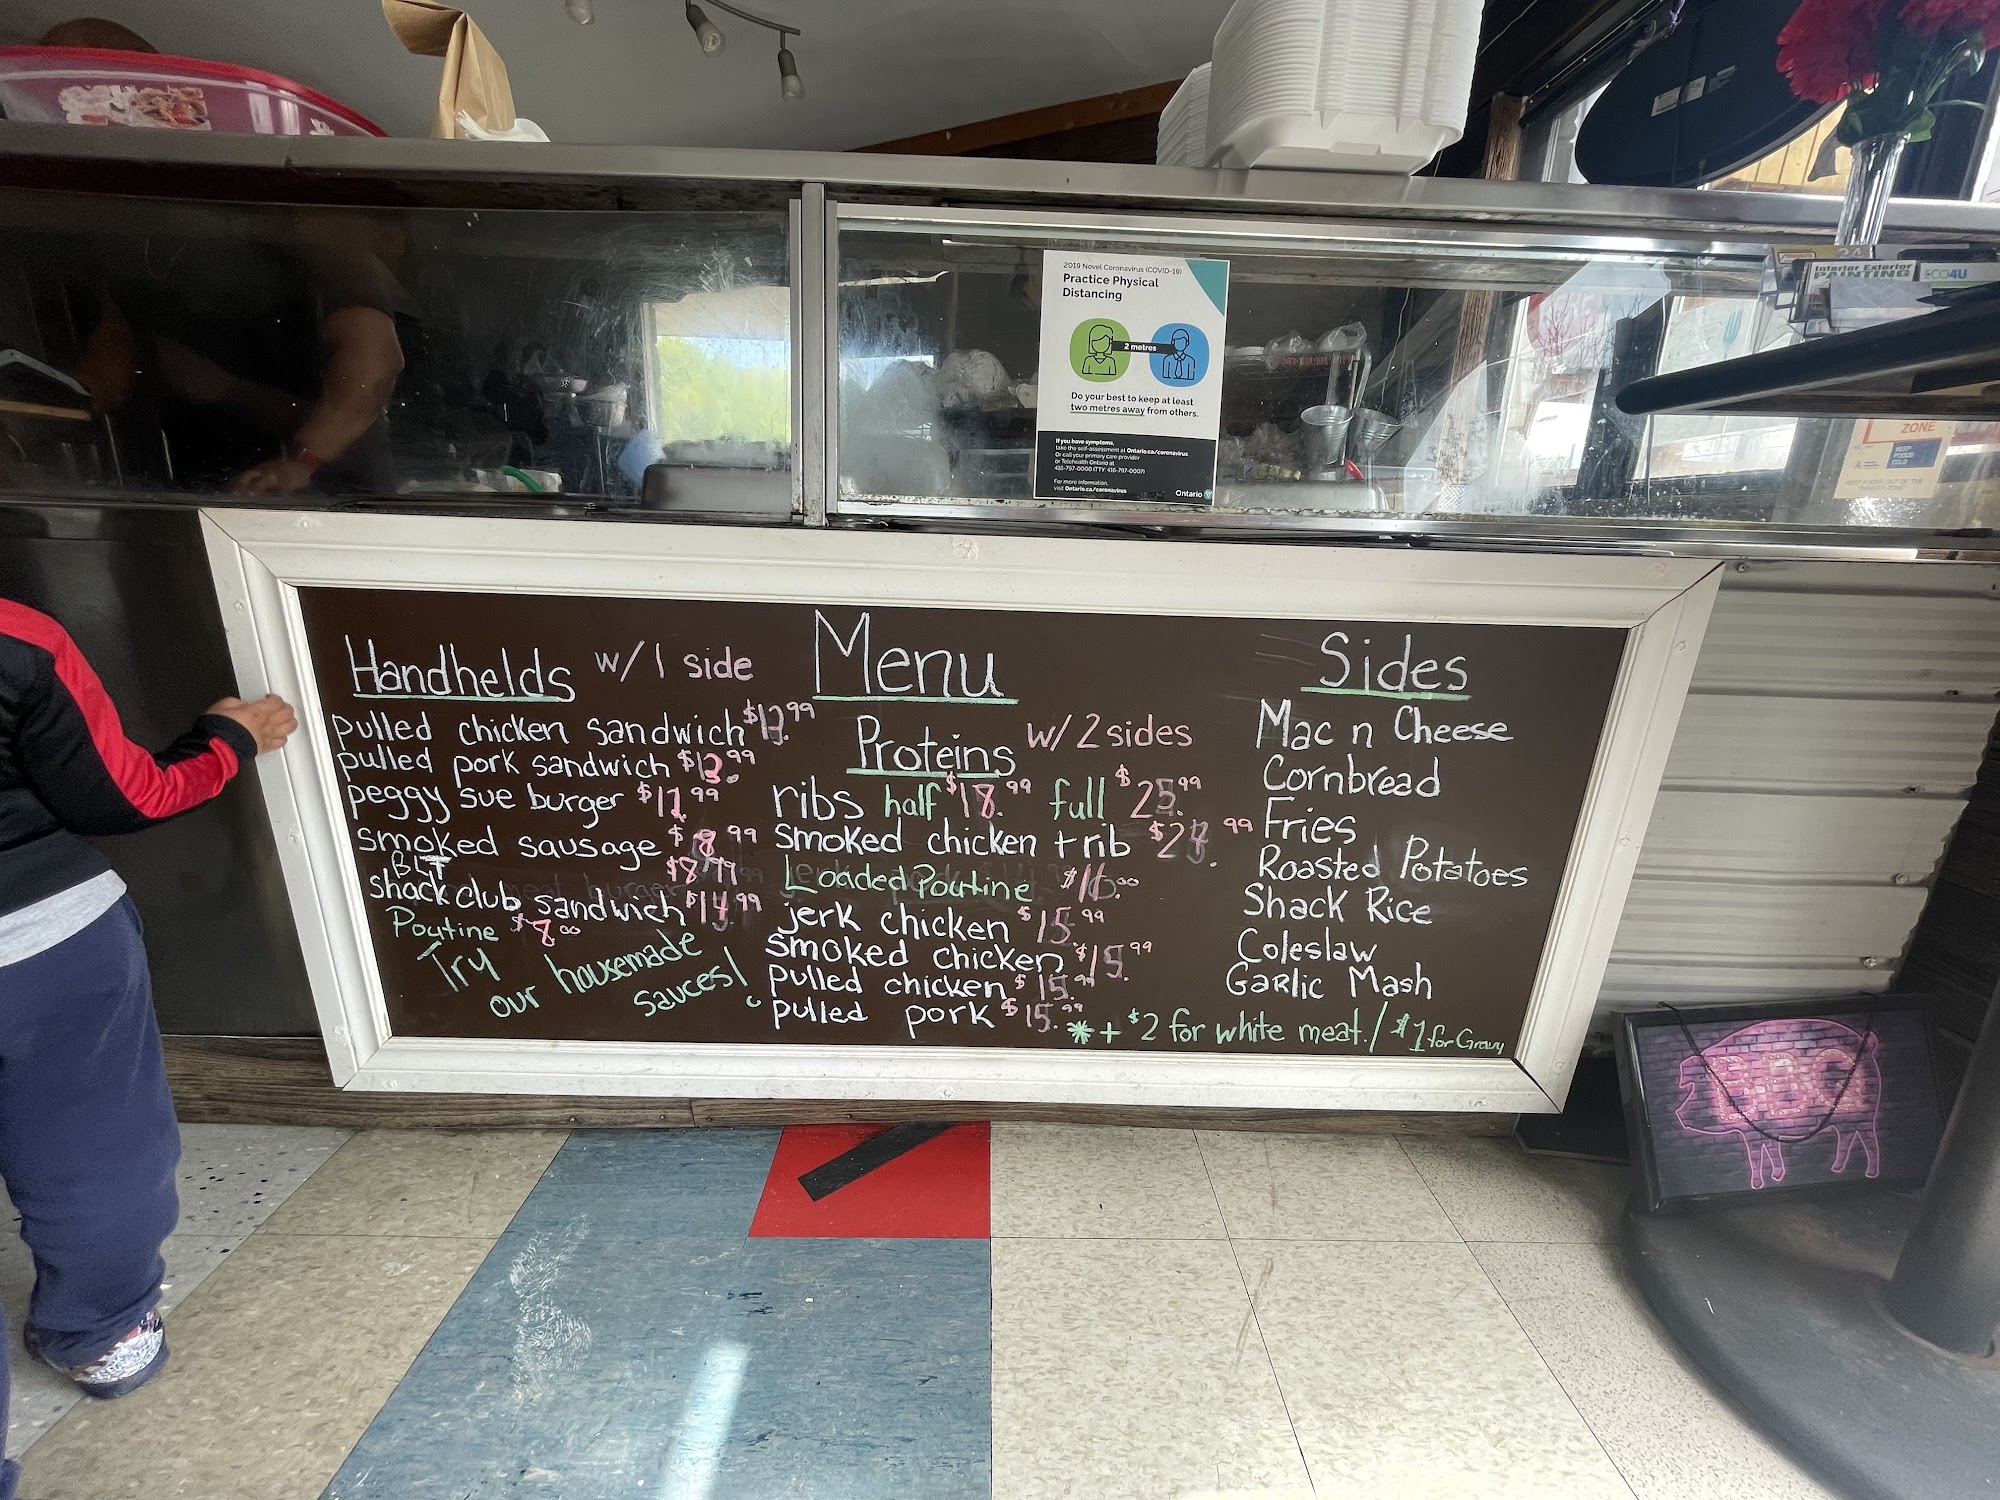 2019 Novel Coronavirus (COVID-19)
Practice Physical
Distancing
2 metres
Do your best to keep at least
two metres away from others.
If you have symptoms,
take the self-assessment at Ontario.ca/coronavirus
Or call your primary care provider
or Telehealth Ontario at
416-797-0000 (TTY: 416-797-0007)
For more information,
visit Ontario.ca/coronavirus
Ontario
Interior Exterior
PAINTING
ECO4U
ZONE
KEEP
FOODS
COLD
Menu
Handhelds w/1 side
pulled chicken sandwich $13.99
pulled pork sandwich $13.99
peggy sue burger $11.99
smoked sausage $8.99
BLT $8.99
shack club sandwich $14.99
Poutine $8.00
Try
our housemade
sauces!
Proteins w/2 sides
ribs half $18.99 full $25.99
smoked chicken + rib $24.99
Loaded Poutine $16.00
jerk chicken $15.99
smoked chicken $15.99
pulled chicken $15.99
pulled pork $15.99
Sides
Mac n Cheese
Cornbread
Fries
Roasted Potatoes
Shack Rice
Coleslaw
Garlic Mash
* + $2 for white meat. / $1 for Gravy
BBQ